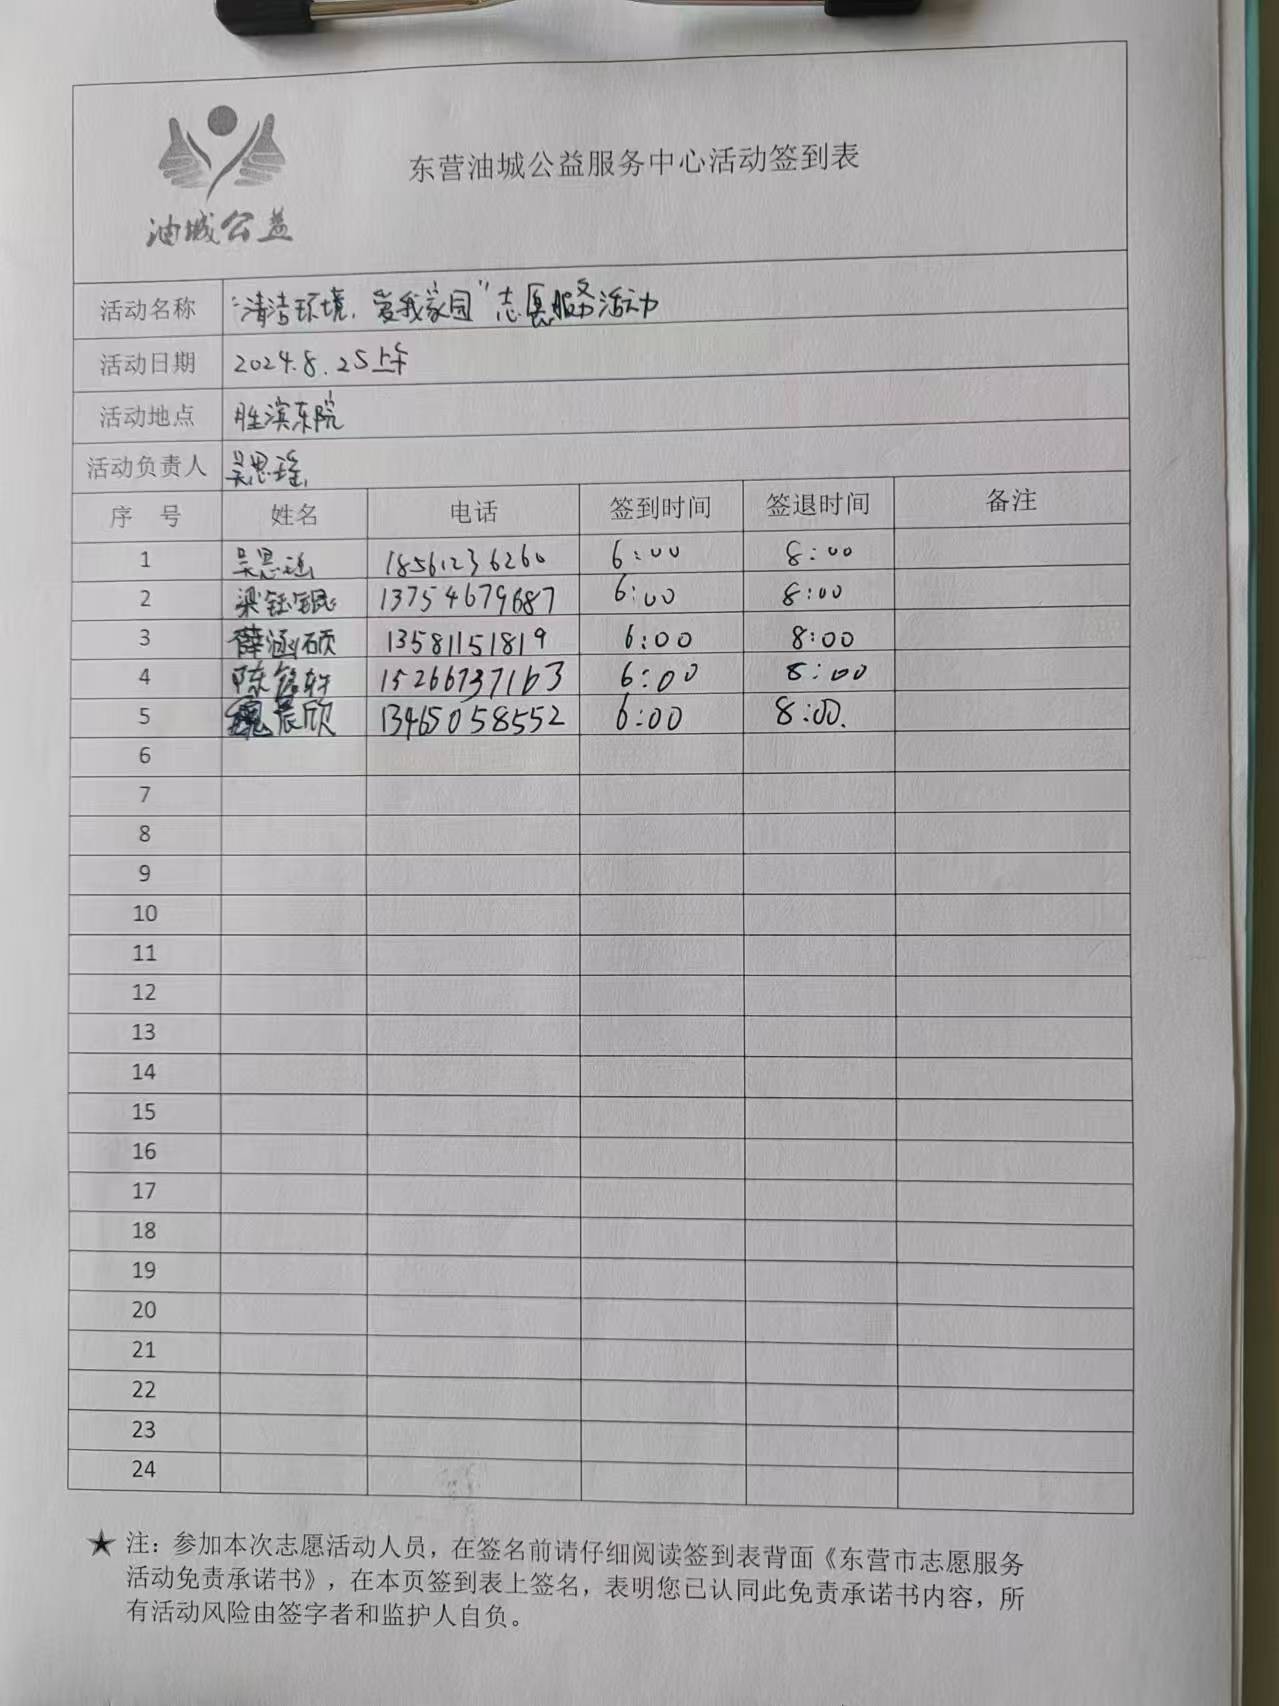 油城公益
东营油城公益服务中心活动签到表
活动名称 "清洁环境，爱我家园"志愿服务活动
活动日期 2024.8.25上午
活动地点 胜滨东院
活动负责人 吴思瑶
序 号 姓名 电话 签到时间 签退时间 备注
1 吴思瑶 18561236260 6:00 8:00
2 梁钰锟 13754679687 6:00 8:00
3 薛涵硕 13581151819 6:00 8:00
4 15266737163 6:00 8:00
5 魏晨欣 13465058552 6:00 8:00.
6
7
8
9
10
11
12
13
14
15
16
17
18
19
20
21
22
23
24
★ 注：参加本次志愿活动人员，在签名前请仔细阅读签到表背面《东营市志愿服务
活动免责承诺书》，在本页签到表上签名，表明您已认同此免责承诺书内容，所
有活动风险由签字者和监护人自负。